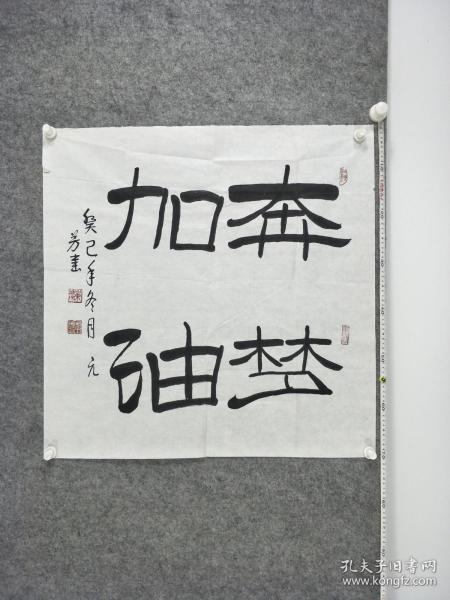 奔梦
加油
癸巳年冬月元
芳書
孔夫子旧书网
www.kongfz.com